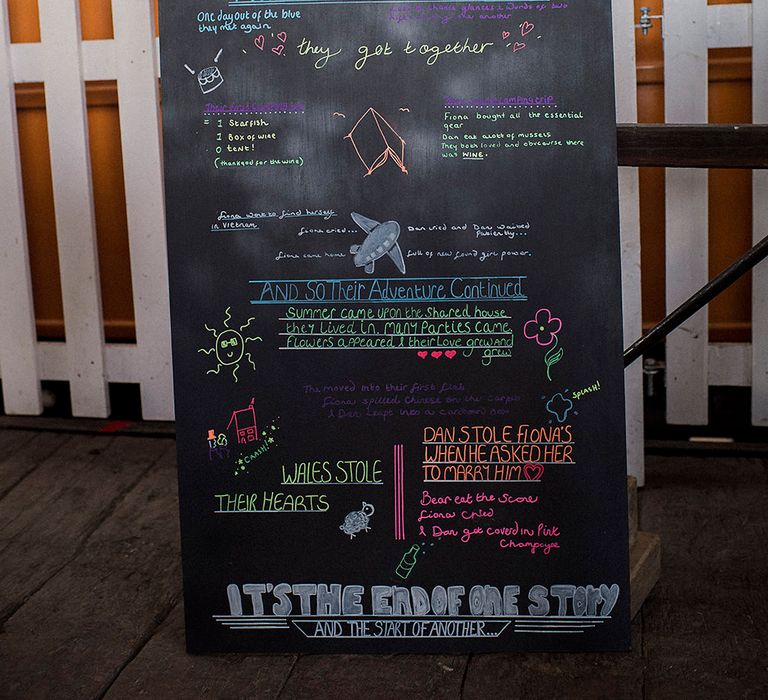 One day out of the blue
they met again
glances & words of two
another
they got together
Their first camping trip
= 1 Starfish
1 Box of wine
0 tent!
(thankgod for the wine)
camping trip
Fiona bought all the essential
gear
Dan eat alott of mussels
They both loved and obvcourse there
was WINE.
Fiona went to find herself
in Vietnam
Fiona cried...
Dan cried and Dan waited
Patiently...
Fiona came home
full of new found girl power.
AND SO Their Adventure Continued
Summer came upon the shared house
they lived in. Many Parties came,
Flowers appeared & their love grew and
grew
The moved into their first flat
Fiona spilled Chinese on the carpet
& Dan leapt into a cardboard box
SPLASH!
CRASH!
WALES STOLE
THEIR HEARTS
DAN STOLE FIONA'S
WHEN HE ASKED HER
TO MARRY HIM
Bear eat the Scone
Fiona cried
& Dan got coverd in Pink
Champagne
IT'S THE END OF ONE STORY
AND THE START OF ANOTHER...